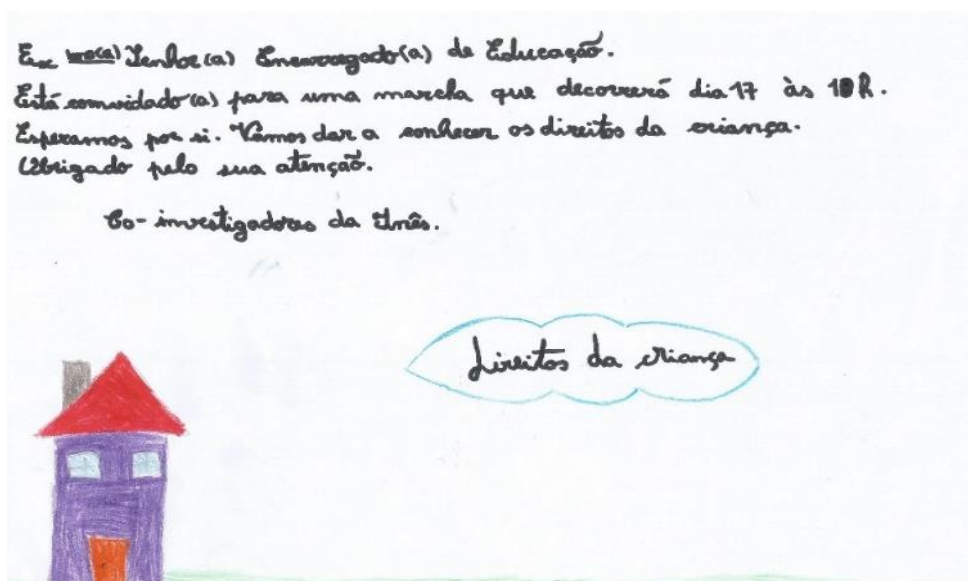 Exc mo(a) Senhor(a) Encarregado(a) de Educação.
Está convidado(a) para uma marcha que decorrerá dia 17 às 10h.
Esperamos por si. Vamos dar a conhecer os direitos da criança.
Obrigado pelo sua atenção.
Co-investigadores da Inês.
Direitos da criança